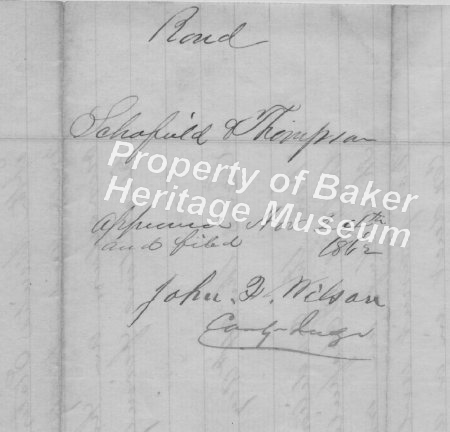 Bond
Schofield & Thompson
Property of Baker
Heritage Museum
Approved Nov
and filed 1862
John F. Wilson
County Judge